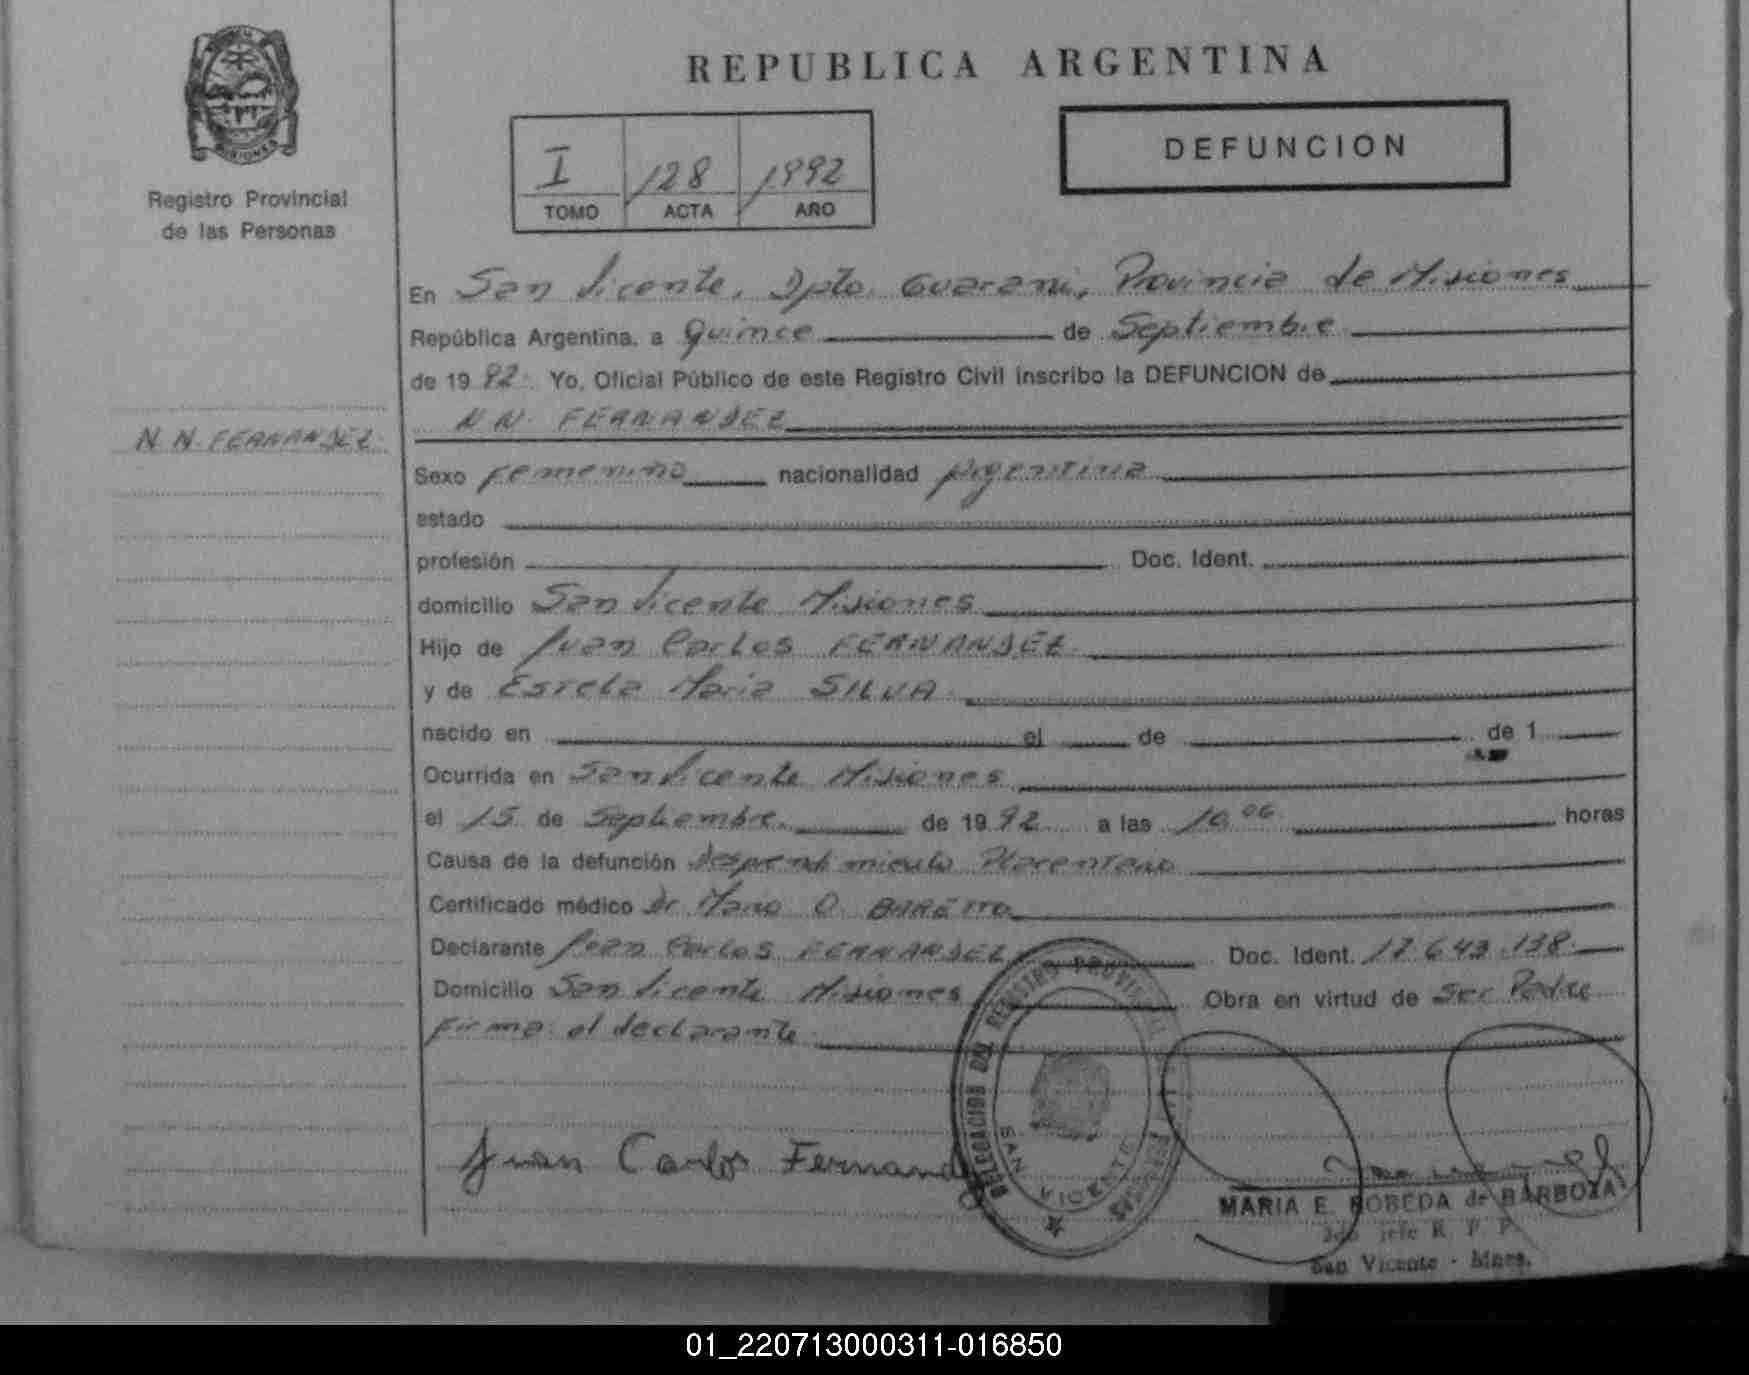 REPUBLICA ARGENTINA
MISIONES
Registro Provincial
de las Personas
I 128 1992
TOMO ACTA AÑO
DEFUNCION
En San Vicente, Dpto. Guaraní, Provincia de Misiones
República Argentina, a Quince de Septiembre
de 19 92 Yo, Oficial Público de este Registro Civil inscribo la DEFUNCION de
N N. FERNANDEZ
N. N. FERNANDEZ
Sexo femenino nacionalidad Argentina
estado
profesión Doc. Ident.
domicilio San Vicente Misiones
Hijo de Juan Carlos FERNANDEZ
y de Estela Maria SILVA
nacido en el de de 1
Ocurrida en San Vicente Misiones
el 15 de Septiembre de 19 92 a las horas
Causa de la defunción desprendimiento Placentario
Certificado médico Dr. Mario O. BARETTO
Declarante Juan Carlos FERNANDEZ Doc. Ident. 17.643.138
Domicilio San Vicente Misiones Obra en virtud de Ser Padre
firma el declarante
DELEGACION DEL REGISTRO PROVINCIAL
SAN VICENTE
Juan Carlos Fernand
MARIA E. ROBEDA de BARBOZA
2do Jefe R. P. P.
San Vicente - Mnes.
01_220713000311-016850